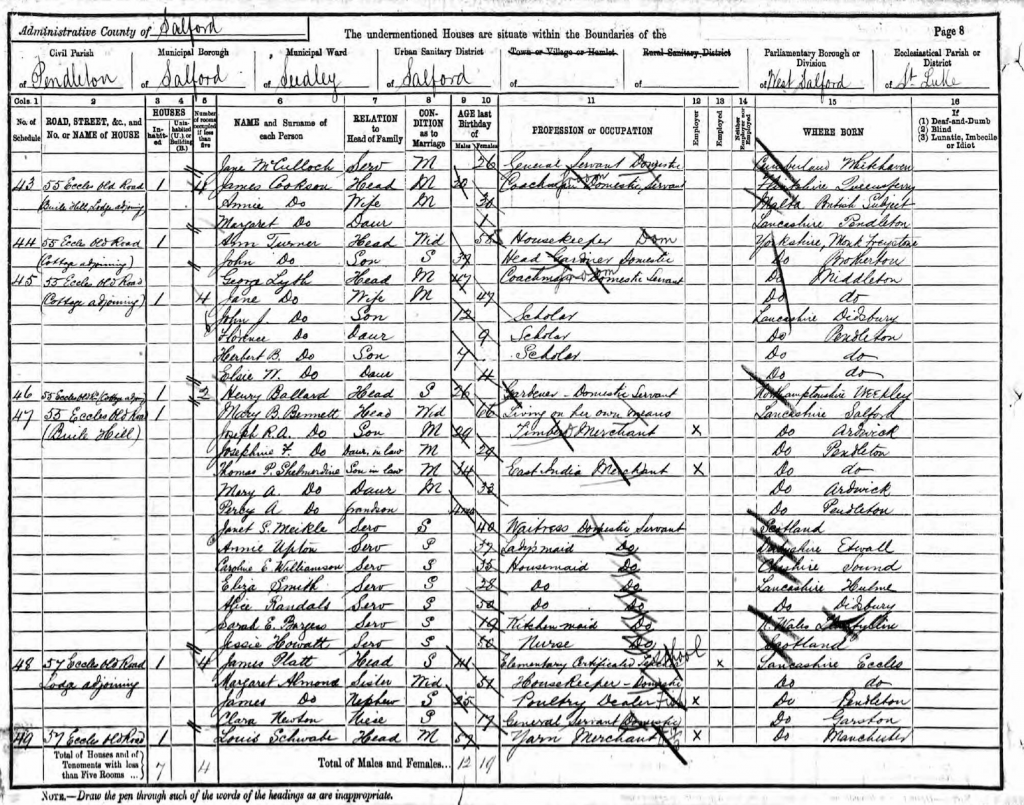 Administrative County of Salford The undermentioned Houses are situate within the Boundaries of the Page 8
Civil Parish Municipal Borough Municipal Ward Urban Sanitary District Town or Village or Hamlet Rural Sanitary District Parliamentary Borough or Division Ecclesiastical Parish or District
of Pendleton of Salford of Seedley of Salford of of of West Salford of St. Luke
Cols. 1 2 3 4 5 6 7 8 9 10 11 12 13 14 15 16
No. of Schedule ROAD, STREET, &c., and No. or NAME of HOUSE HOUSES Inhabited Uninhabited (U.) or Building (B.) Number of rooms occupied if less than five NAME and Surname of each Person RELATION to Head of Family CONDITION as to Marriage AGE last Birthday of Males Females PROFESSION or OCCUPATION Employer Employed Neither Employer nor Employed WHERE BORN If (1) Deaf-and-Dumb (2) Blind (3) Lunatic, Imbecile or Idiot
Jane McCulloch Serv M 26 General Servant Domestic Cumberland Whitehaven
43 55 Eccles Old Road 1 4 James Cookson Head M 30 Coachman Dom Domestic Servant Queensferry
Buile Hill Lodge adjoining Annie Do Wife M 30 Malta British Subject
Margaret Do Daur 1 Lancashire Pendleton
44 55 Eccles Old Road 1 Ann Turner Head Wid 58 Housekeeper Dom Yorkshire, Monk Frystone
(Cottage adjoining) John Do Son S 37 Head Gardiner Domestic Do Brotherton
45 55 Eccles Old Road George Lyth Head M 47 Coachman Dom Domestic Servant Do Middleton
(Cottage adjoining) 1 4 Jane Do Wife M 47 Do do
John J. Do Son 12 Scholar Lancashire Didsbury
Florence Do Daur 9 Scholar Do Pendleton
Herbert B. Do Son 7 Scholar Do do
Elsie W. Do Daur 4 Do do
46 55 Eccles Old Rd (Cottage adjoing 1 2 Henry Ballard Head S 26 Gardener - Domestic Servant Northamptonshire Weekley
47 55 Eccles Old Road 1 Mary B. Bennett Head Wid 66 Living on her own means Lancashire Salford
(Buile Hill) Joseph R.A. Do Son M 29 Timber Merchant X Do Ardwick
Josephine F. Do Daur. in law M 29 Do Pendleton
Thomas P. Shelmerdine Son in law M 34 East India Merchant X Do do
Mary A. Do Daur M 33 Do Ardwick
Percy A Do grandson 4mo Do Pendleton
Janet S. Meikle Serv S 40 Waitress Domestic Servant Scotland
Annie Upton Serv S 37 Ladysmaid Do Derbyshire Etwall
Caroline E Williamson Serv S 33 Housemaid Do Cheshire Sound
Eliza Smith Serv S 28 Do Do Lancashire Hulme
Alice Randals Serv S 50 Do Do Do Didsbury
Sarah E. Burgess Serv S 19 Kitchen maid Do N. Wales
Jessie Howatt Serv S 50 Nurse Do Scotland
48 57 Eccles Old Road 1 4 James Platt Head S 41 Elementary Certificated School X Lancashire Eccles
Lodge adjoining Margaret Almond Sister Wid 51 Housekeeper - Domestic Do do
James Do Nephew S 25 Poultry Dealer X Do Pendleton
Clara Newton Niese S 17 General Servant Domestic Do Garston
49 57 Eccles Old Road 1 Louis Schwabe Head M 57 Yarn Merchant X Do Manchester
Total of Houses and of Tenements with less than Five Rooms ... 7 4 Total of Males and Females... 12 19
NOTE.—Draw the pen through such of the words of the headings as are inappropriate.